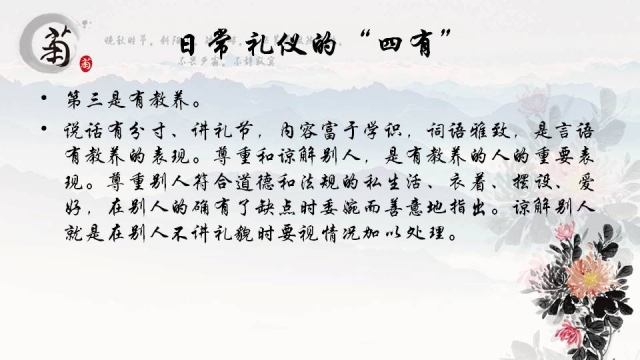 菊
菊
日常礼仪的“四有”
• 第三是有教养。
• 说话有分寸、讲礼节，内容富于学识，词语雅致，是言语
有教养的表现。尊重和谅解别人，是有教养的人的重要表
现。尊重别人符合道德和法规的私生活、衣着、摆设、爱
好，在别人的确有了缺点时委婉而善意地指出。谅解别人
就是在别人不讲礼貌时要视情况加以处理。